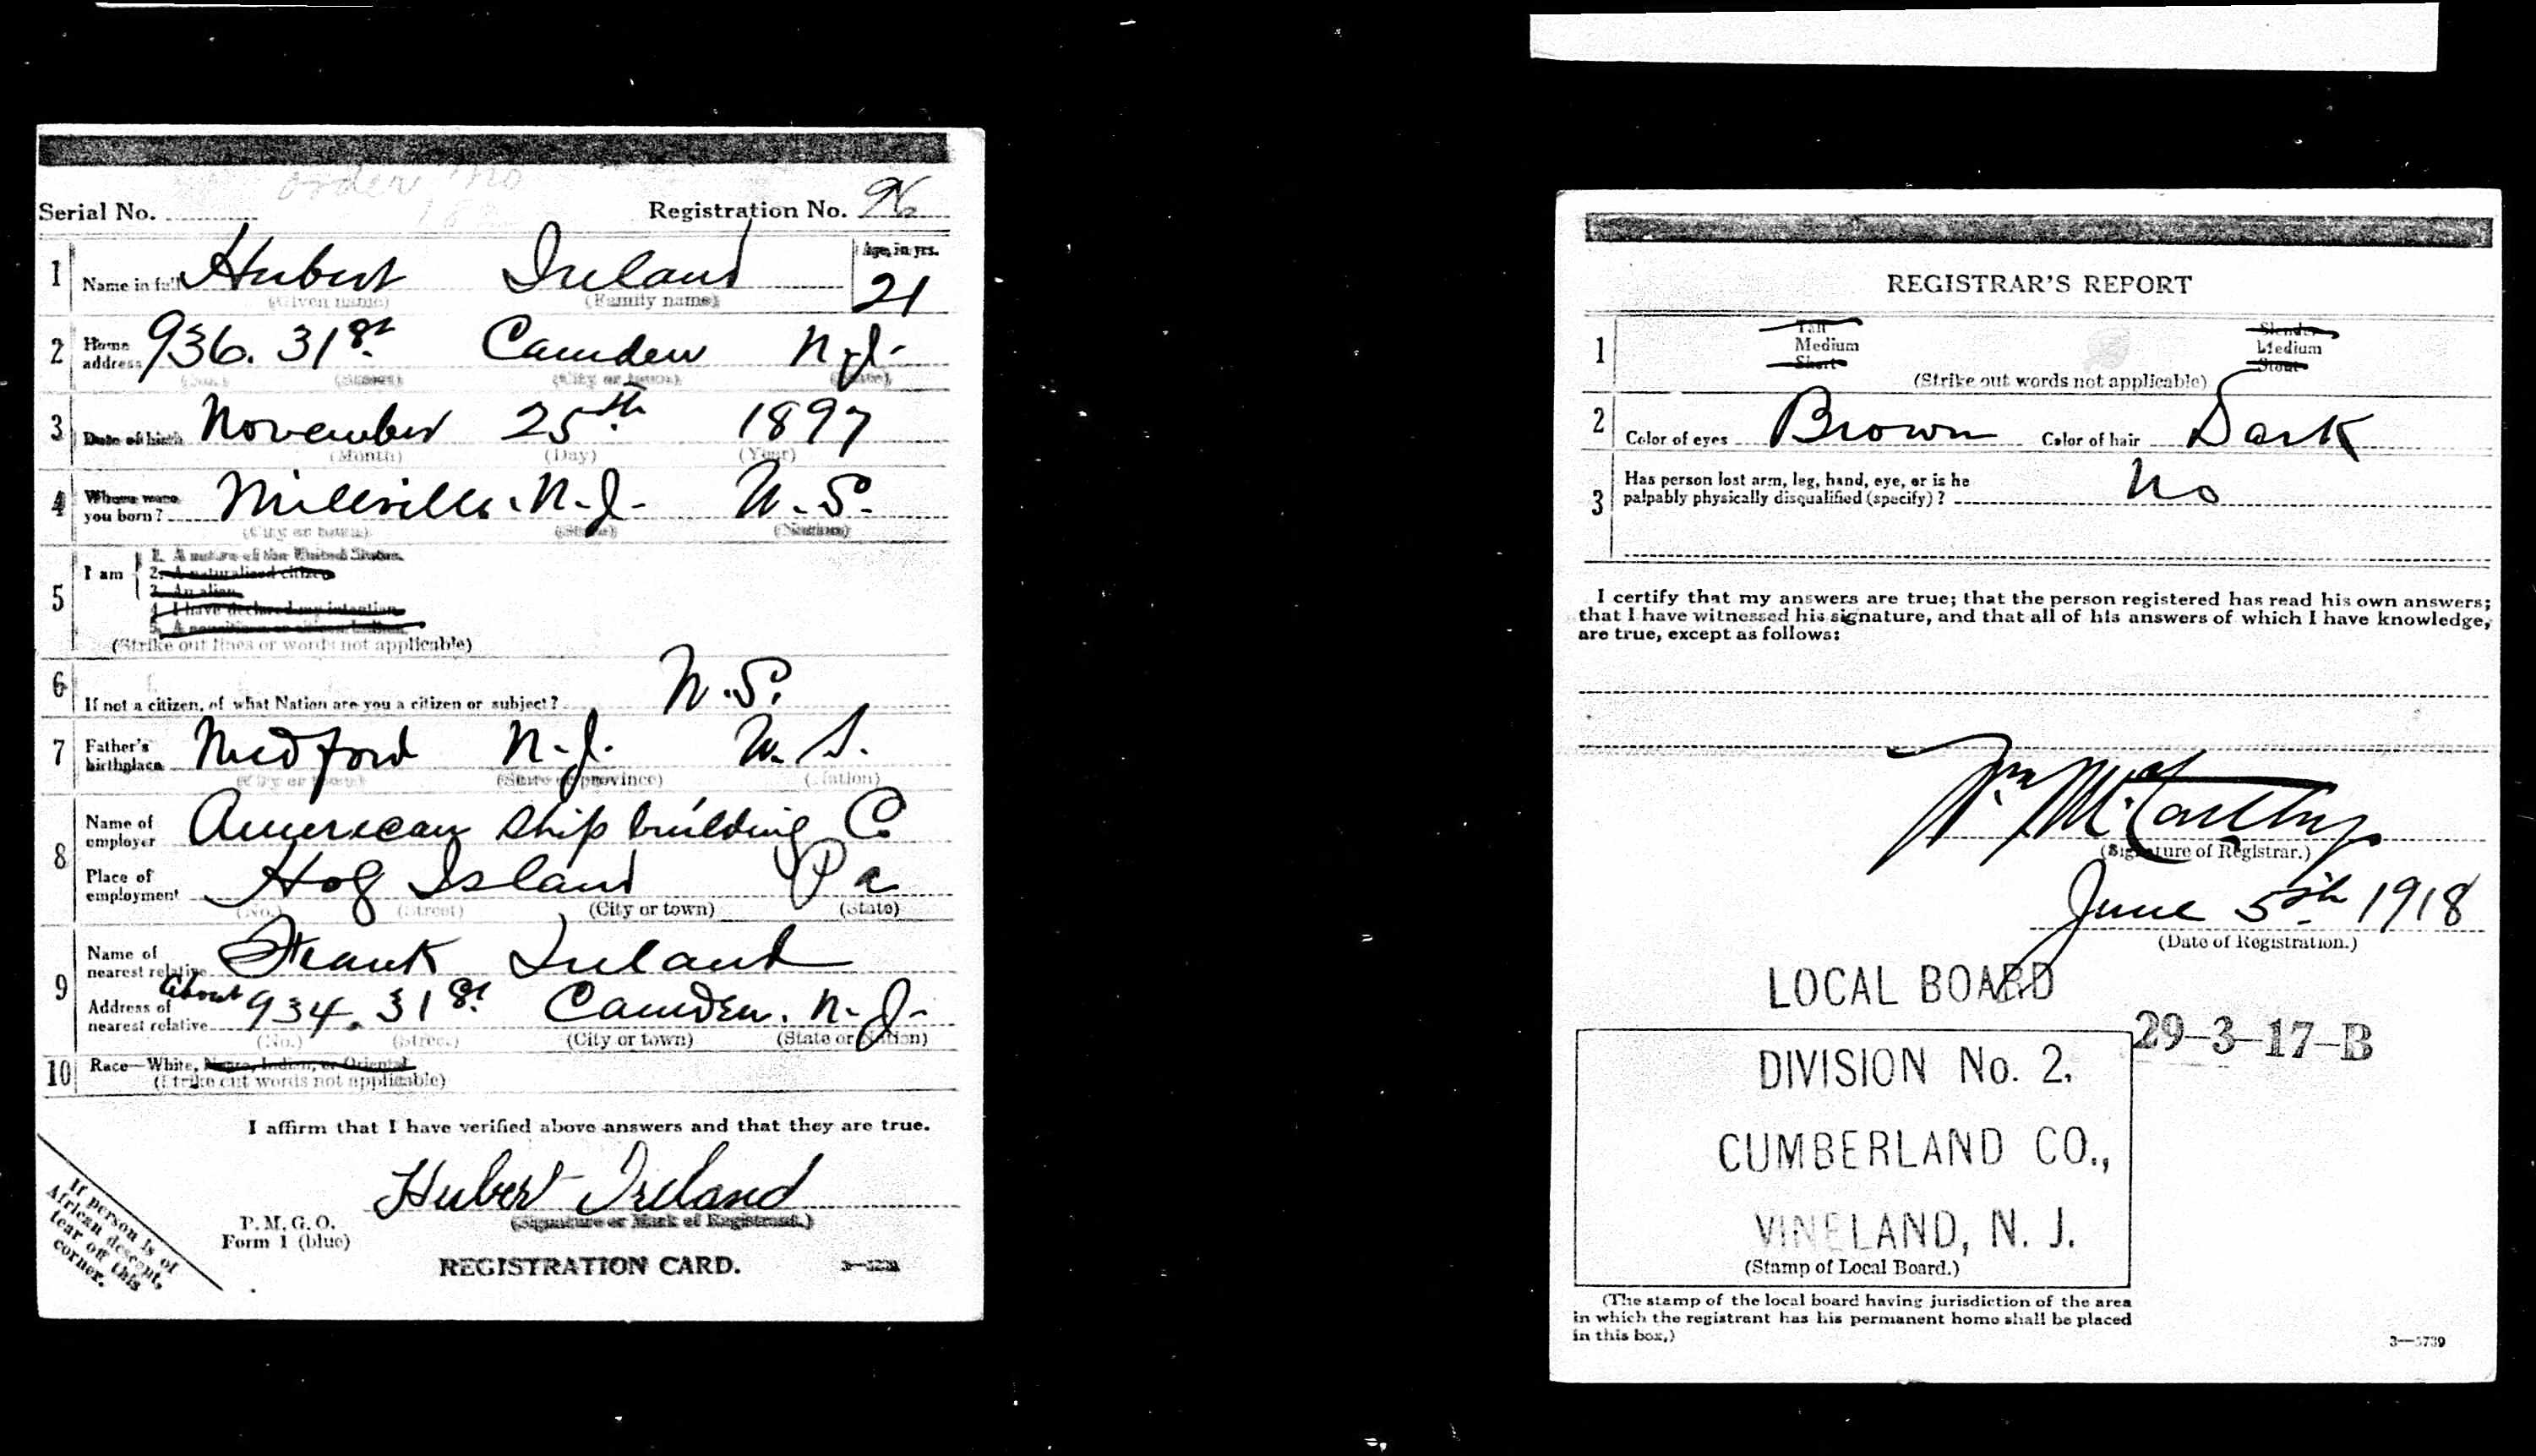 order no
Serial No. Registration No. 96
1 Name in full Hubert Ireland Age, in yrs. 21
(Given name) (Family name)
2 Home address 936. 31 St. Camden N.J.
(No.) (Street) (City or town) (State)
3 Date of birth November 25th 1897
(Month) (Day) (Year)
4 Where were you born? Millville. N.J. U.S.
(City or town) (State) (Nation)
5 I am
1. A native of the United States.
2. A naturalized citizen
3. An alien
4. I have declared my intention
5. A noncitizen or citizen Indian
(Strike out lines or words not applicable)
6 If not a citizen, of what Nation are you a citizen or subject? U.S.
7 Father's birthplace Medford N.J. U.S.
(City or town) (State or province) (Nation)
8 Name of employer American Ship building Co
Place of employment Hog Island Pa
(No.) (Street) (City or town) (State)
9 Name of nearest relative Frank Ireland
Address of nearest relative About 934. 31 St. Camden. N.J.
(No.) (Street) (City or town) (State or Nation)
10 Race—White, Negro, Indian, or Oriental
(Strike out words not applicable)
I affirm that I have verified above answers and that they are true.
Hubert Ireland
(Signature or Mark of Registrant.)
P. M. G. O.
Form 1 (blue)
REGISTRATION CARD.
If person is of
African descent,
tear off this
corner.
REGISTRAR'S REPORT
1 Tall Slender
Medium Medium
Short Stout
(Strike out words not applicable)
2 Color of eyes Brown Color of hair Dark
3 Has person lost arm, leg, hand, eye, or is he
palpably physically disqualified (specify)? No
I certify that my answers are true; that the person registered has read his own answers;
that I have witnessed his signature, and that all of his answers of which I have knowledge,
are true, except as follows:
Wm McCarthy
(Signature of Registrar.)
June 5th 1918
(Date of Registration.)
LOCAL BOARD
29-3-17-B
DIVISION No. 2,
CUMBERLAND CO.,
VINELAND, N. J.
(Stamp of Local Board.)
(The stamp of the local board having jurisdiction of the area
in which the registrant has his permanent home shall be placed
in this box.)